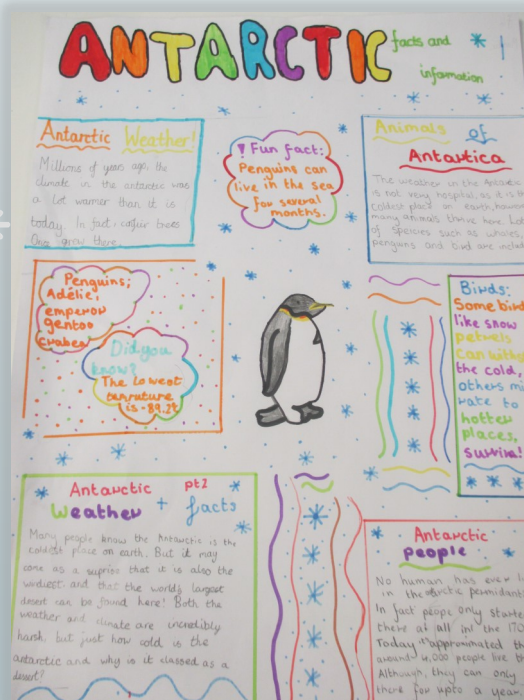 ANTARCTIC
facts and
information
Antarctic Weather!
Millions of years ago, the
climate in the antarctic was
a lot warmer than it is
today. In fact, conifer trees
Once grew there.
! Fun fact:
Penguins can
live in the sea
for several
months.
Animals of
Antartica
The weather in the Antarctic
is not very hospital, as it is th
coldest place on earth, however
many animals thrive here. Lot
of species such as whales,
penguins and bird are includ
Penguins;
Adélie,
emperor
gentoo
Did you
know?
The lowest
is -89.2t
Birds:
Some bird
like snow
petrels
can with
the cold,
others mi
rate to
hotter
places,
survive!
Antarctic pt2
Weather + facts
Many people know the Antarctic is the
coldest place on earth. But it may
come as a suprise that it is also the
windiest and that the world's largest
desert can be found here! Both the
weather and climate are incredibly
harsh, but just how cold is the
antarctic and why is it classed as a
desert?
Antarctic
people
No human has ever l
in the arctic permidantl
In fact peope only starte
there at all in the 170
Today approximated th
around 4,000 people live th
Although, they can only
there for upto a year